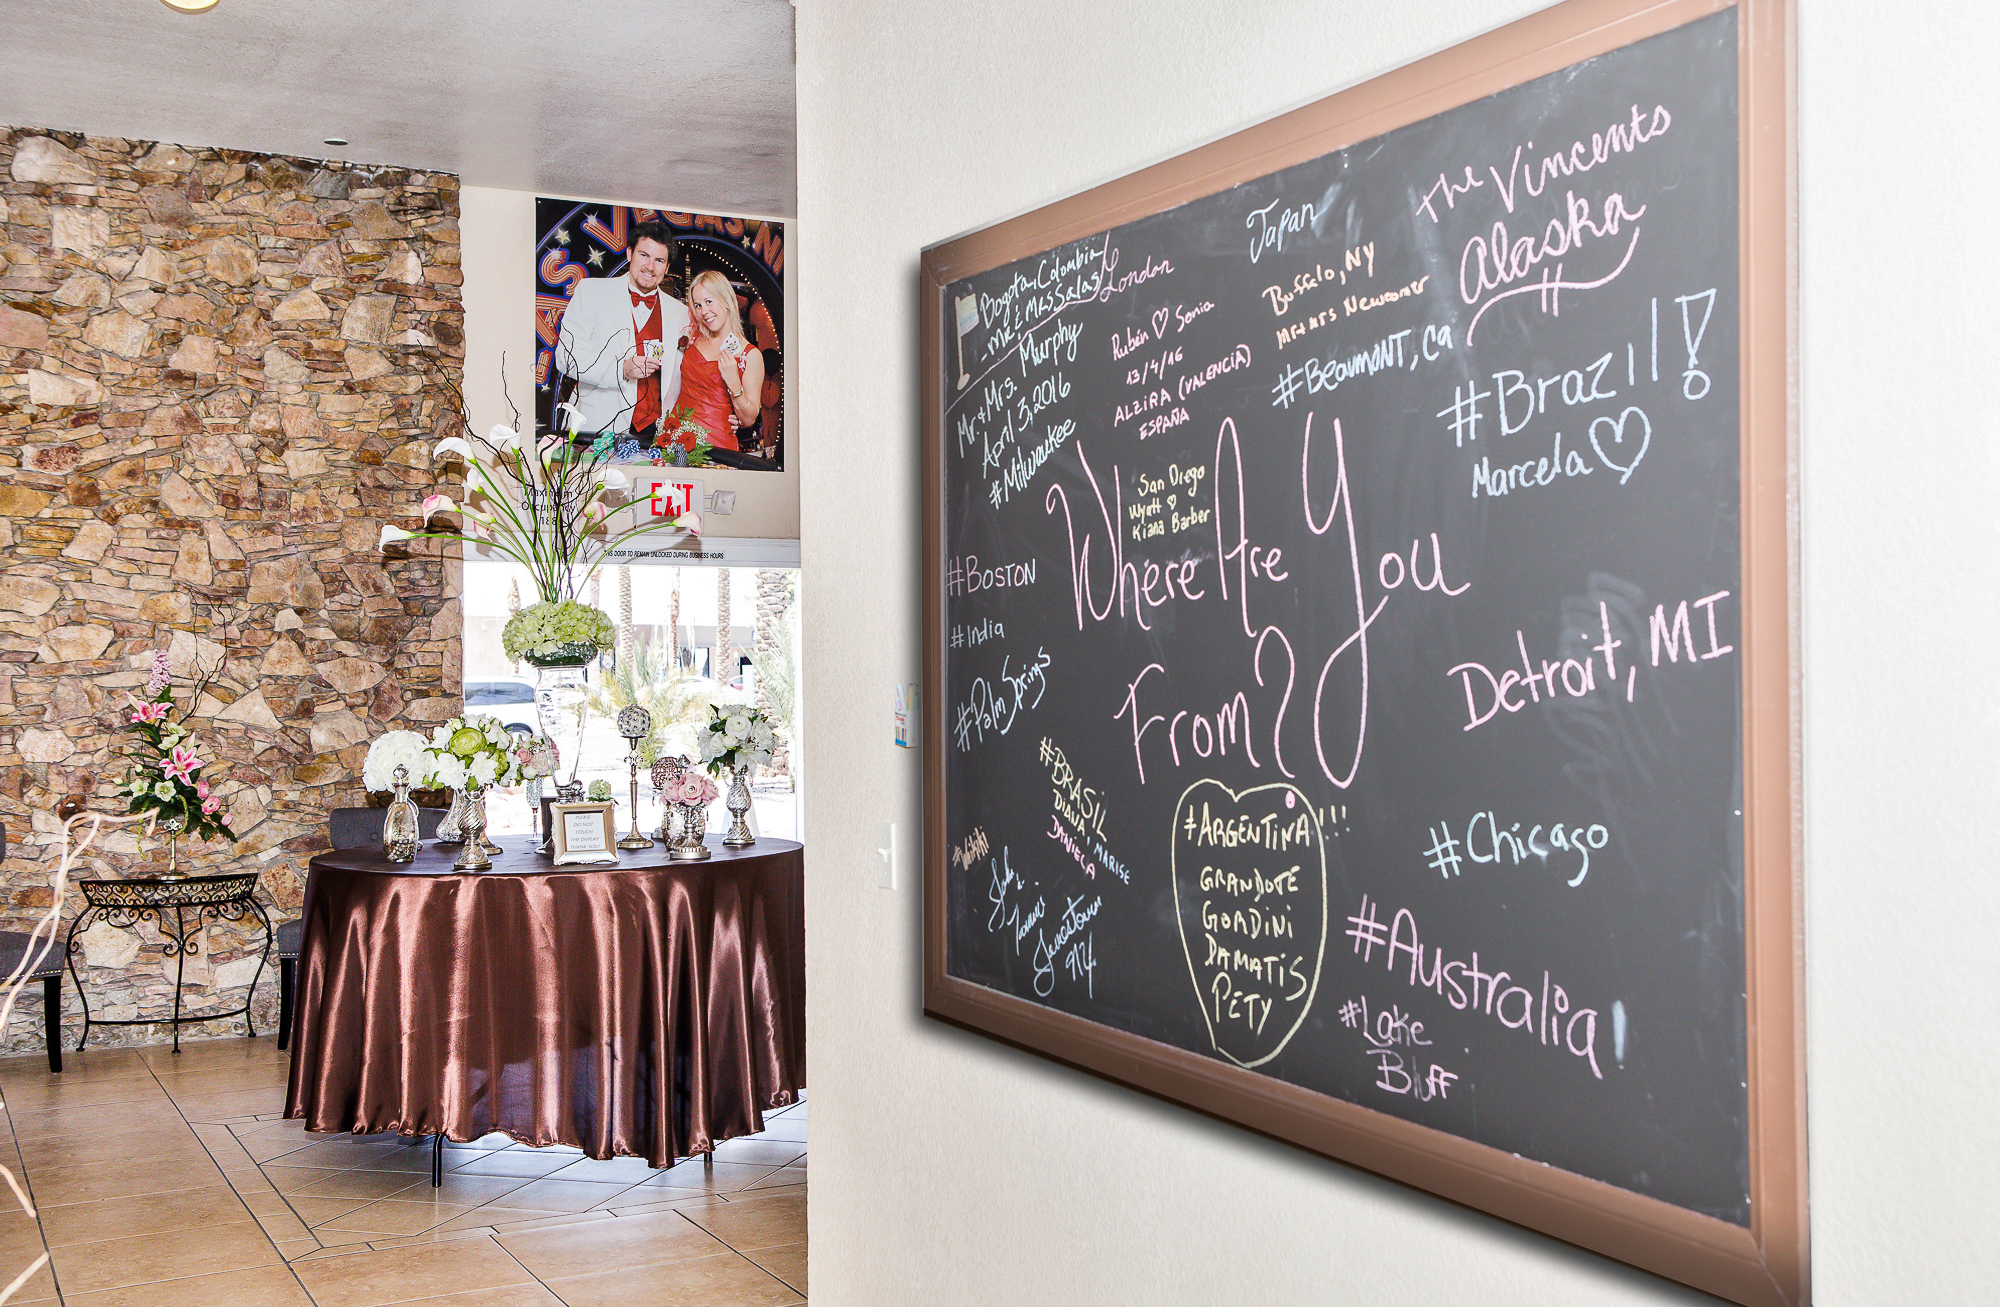 LAS VEGAS
EXIT
Maximum
Occupancy
THIS DOOR TO REMAIN UNLOCKED DURING BUSINESS HOURS
PLEASE
DO NOT
TOUCH
THE DISPLAY
THANK YOU!
Bogota, Colombia
- MR & MRS Salas
London
Japan
The Vincents
Alaska
Mr. & Mrs. Murphy
April 3, 2016
#Milwaukee
Rubén ♡ Sonia
13/4/16
ALZIRA (VALENCIA)
ESPAÑA
Buffalo, NY
Mr & Mrs Newcomer
#BEAUMONT, Ca
#Brazil!
Marcela ♡
San Diego
Wyatt ♡
Kiana Barber
Where Are You
From?
#BOSTON
#India
#Palm Springs
Detroit, MI
#BRASIL
DIANA, MARISE
DANIELA
#Waikiki
Jamestown
NY.
#ARGENTINA!!!
GRANDOTE
GORDINI
DAMATIS
PETY
#Chicago
#Australia!
#Lake
Bluff